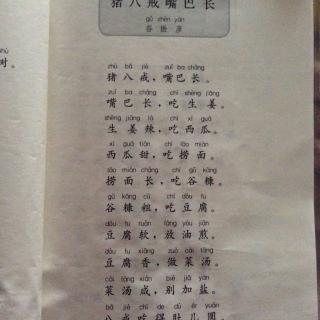 猪八戒嘴巴长
gǔ shèn yàn
谷慎彦
shù
对。
zhū bā jiè zuǐ ba cháng
猪八戒，嘴巴长。
zuǐ ba cháng chī shēng jiāng
嘴巴长，吃生姜。
shēng jiāng là chī xī guā
生姜辣，吃西瓜。
xī guā tián lāo miàn
西瓜甜，吃捞面。
lāo miàn cháng chī gǔ kāng
捞面长，吃谷糠。
gǔ kāng cū chī dòu fu
谷糠粗，吃豆腐。
dòu fu ruǎn fàng yóu jiān
豆腐软，放油煎。
dòu fu xiāng zuò cài tāng
豆腐香，做菜汤。
cài tāng xián bié jiā yán
菜汤咸，别加盐。
bā jiè chī de dù ér yuán
八戒吃得肚儿圆